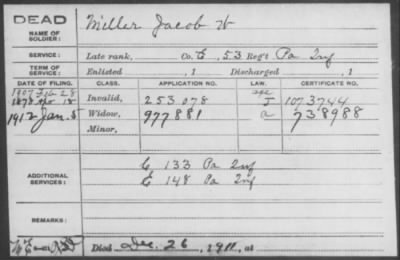 DEAD
NAME OF SOLDIER: Miller Jacob W
SERVICE: Late rank, Co. E, 53 Reg't Pa Inf
TERM OF SERVICE: Enlisted , 1 Discharged , 1
DATE OF FILING. CLASS. APPLICATION NO. LAW. CERTIFICATE NO.
1907 Feb 28 age
1878 Nov 18 Invalid, 253 078 J 1073744
1912 Jan. 5 Widow, 977881 a 738988
Minor,
ADDITIONAL SERVICES: E 133 Pa Inf
E 148 Pa Inf
REMARKS:
Died Dec. 26, 1911, at